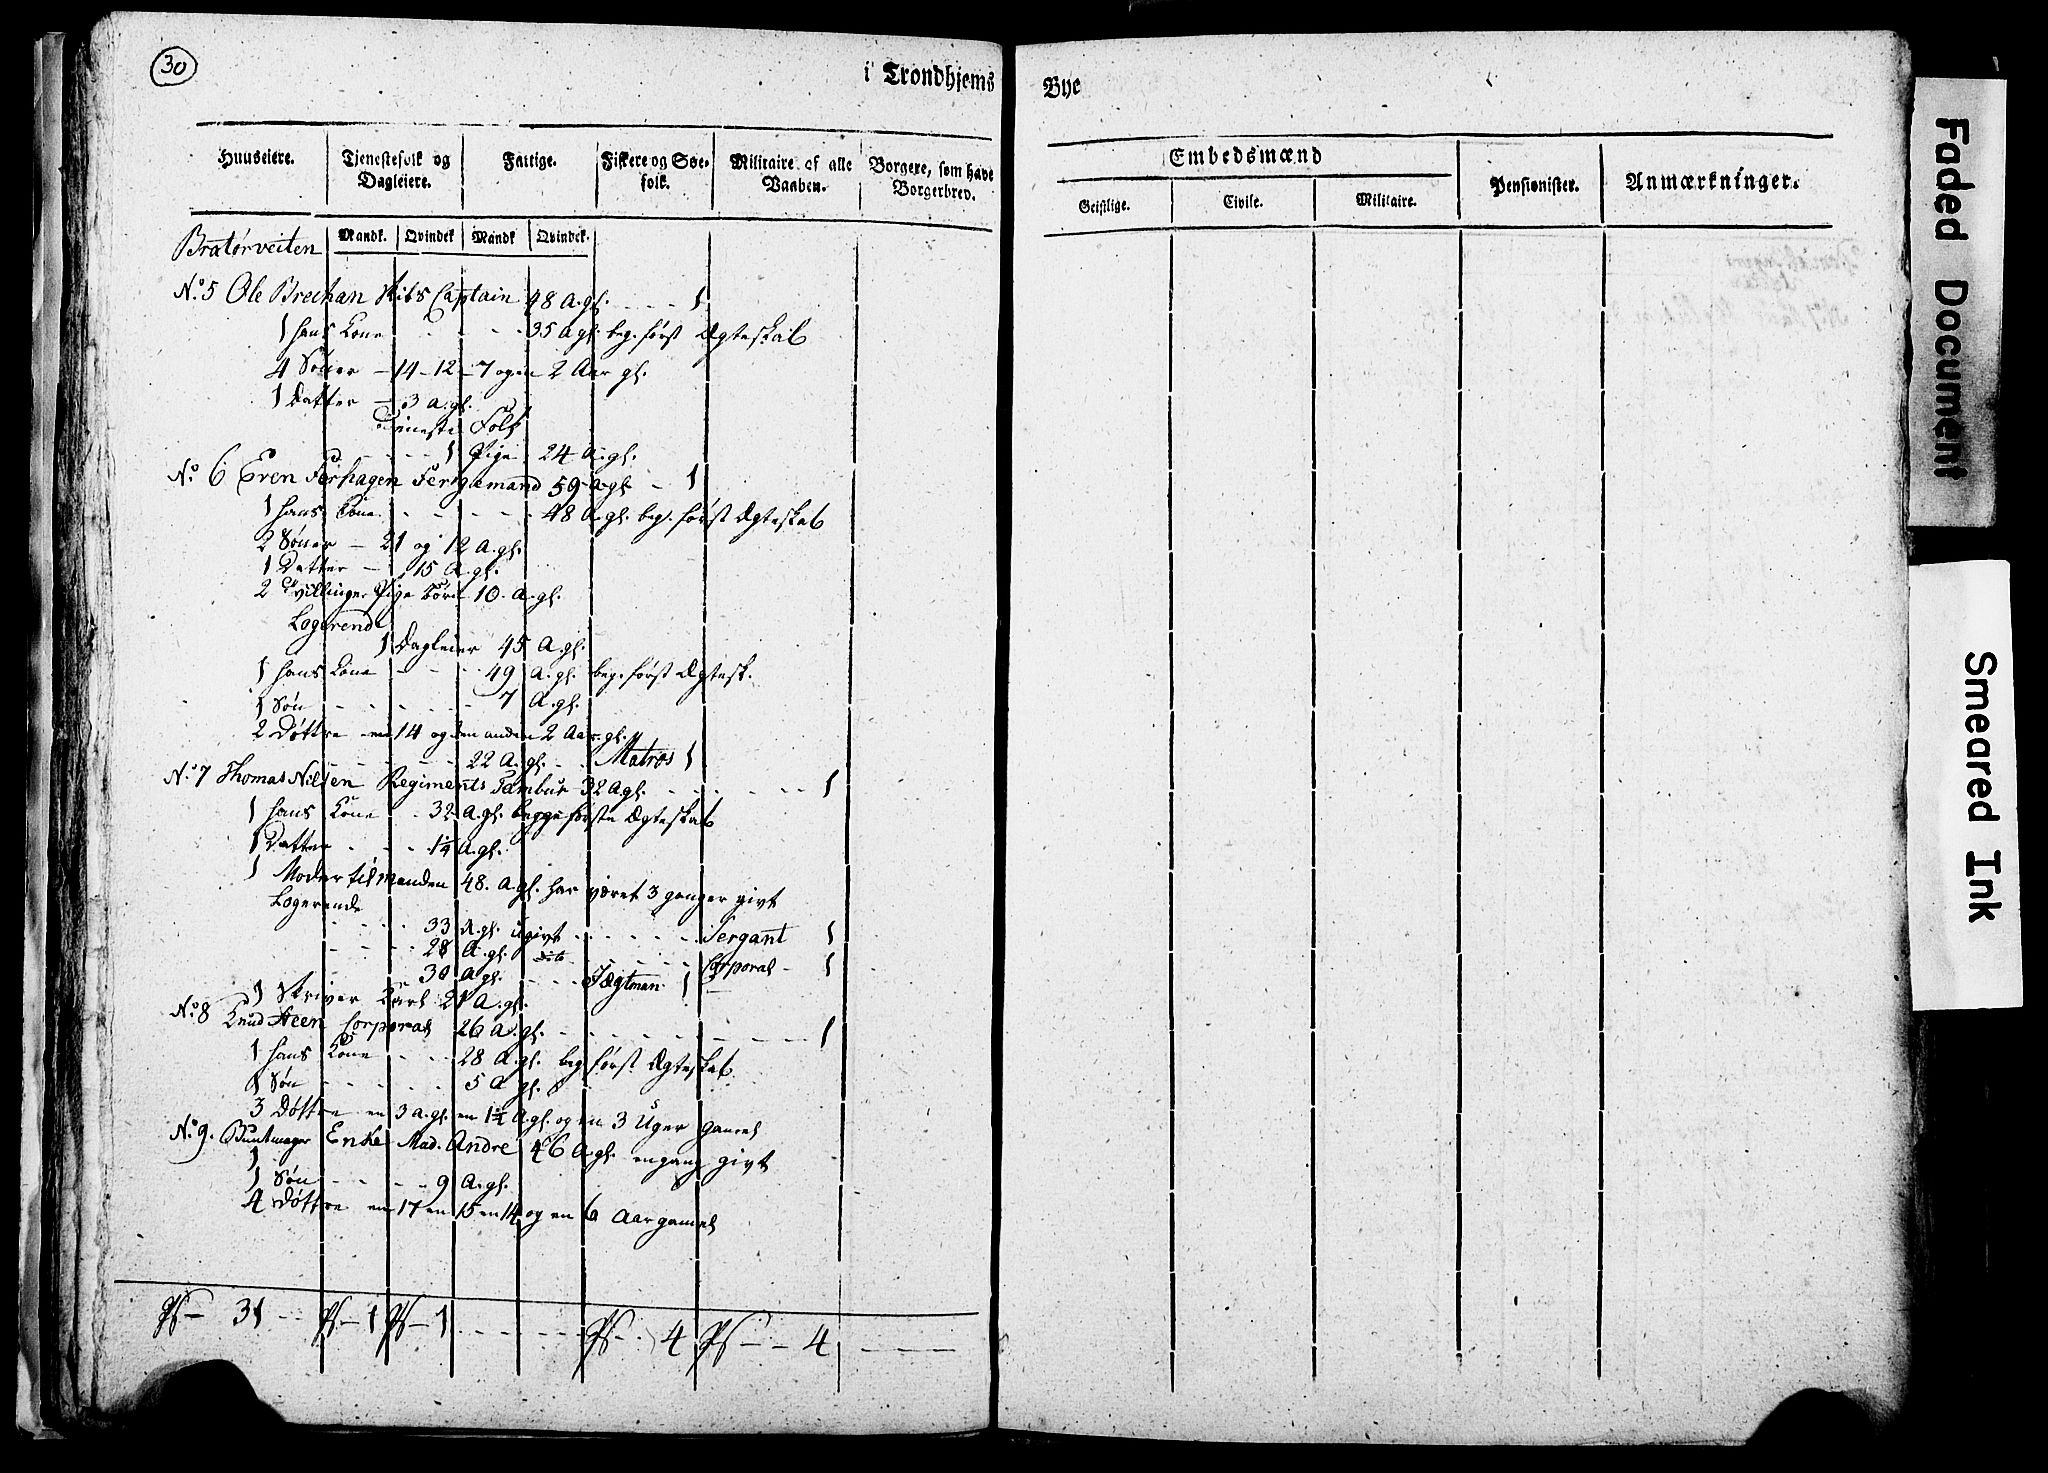 30
i Trondhjems Bye
Huuseiere. Tjenestefolk og Dagleiere. Fattige. Fiskere og Søefolk. Militaire af alle Vaaben. Borgere, som have Borgerbrev. Embedsmænd Pensionister. Anmærkninger.
Geistlige. Civile. Militaire.
Mandk. Qvindek Mandk Qvindek.
Bratørveiten
No. 5 Ole Brechan Skibs Captain 48 A. gl. - - - 1
1 hans Kone - - - - 35 A gl. beg. først Ægteskab
4 Sønner - 14 - 12 - 7 og en 2 Aar gl.
1 Datter - 3 A. gl.
Tieneste Folk
- - - - 1 Pige 24 A. gl.
No. 6 Even Ferhagen Fergemand 59 A gl - 1
1 hans Kone - - - - - 48 A. gl. beg. først Ægteskab
2 Søner - 21 og 12 A. gl.
1 Datter - 15 A gl.
2 Tvillinger Pige Børn 10 A. gl.
Logerende
1 Dagleier 45 A. gl.
1 hans Kone - - - 49 A. gl. beg. først Ægtesk.
1 Søn - - - - - - 7 A. gl.
2 Døttre en 14 og den anden 2 Aar gl.
- - - - - - 22 A. gl. - - Matros 1
No. 7 Thomas Nilsen Regiments Tambur 32 A gl. - - - - - - 1
1 hans Kone - - 32 A. gl. begge første Ægteskab
1 Datter - - - 1¼ A. gl.
1 Moder til manden 48. A. gl. har været 3 ganger givt
Logerende
- - - - 33 A. gl. Ugivt - - - - - - Sergant 1
- - - - 28 A. gl. dito - - - - - Corporal - 1
30 A gl. - - - Jægtman 1
1 Skriver Karl 21 A. gl.
No. 8 Knud Aeen Corporal 26 A. gl. - - - - - - - - - 1
1 hans Kone - - - 28 A. gl. beg først Ægteskab
1 Søn - - - - - 5 A gl.
3 Døttre en 3 a. gl. en 1½ A gl. og en 3 Uger gamel
No. 9. Buntmager Enke Mad. Andre 46 A. gl. engang givt
1
1 Søn - - - - 9 A. gl.
4 Døttre en 17 en 15 en 14 og en 6 Aar gamel
31 - - 1 1 - - - - - - 4 - - 4 - - - -
Faded Document
Smeared Ink